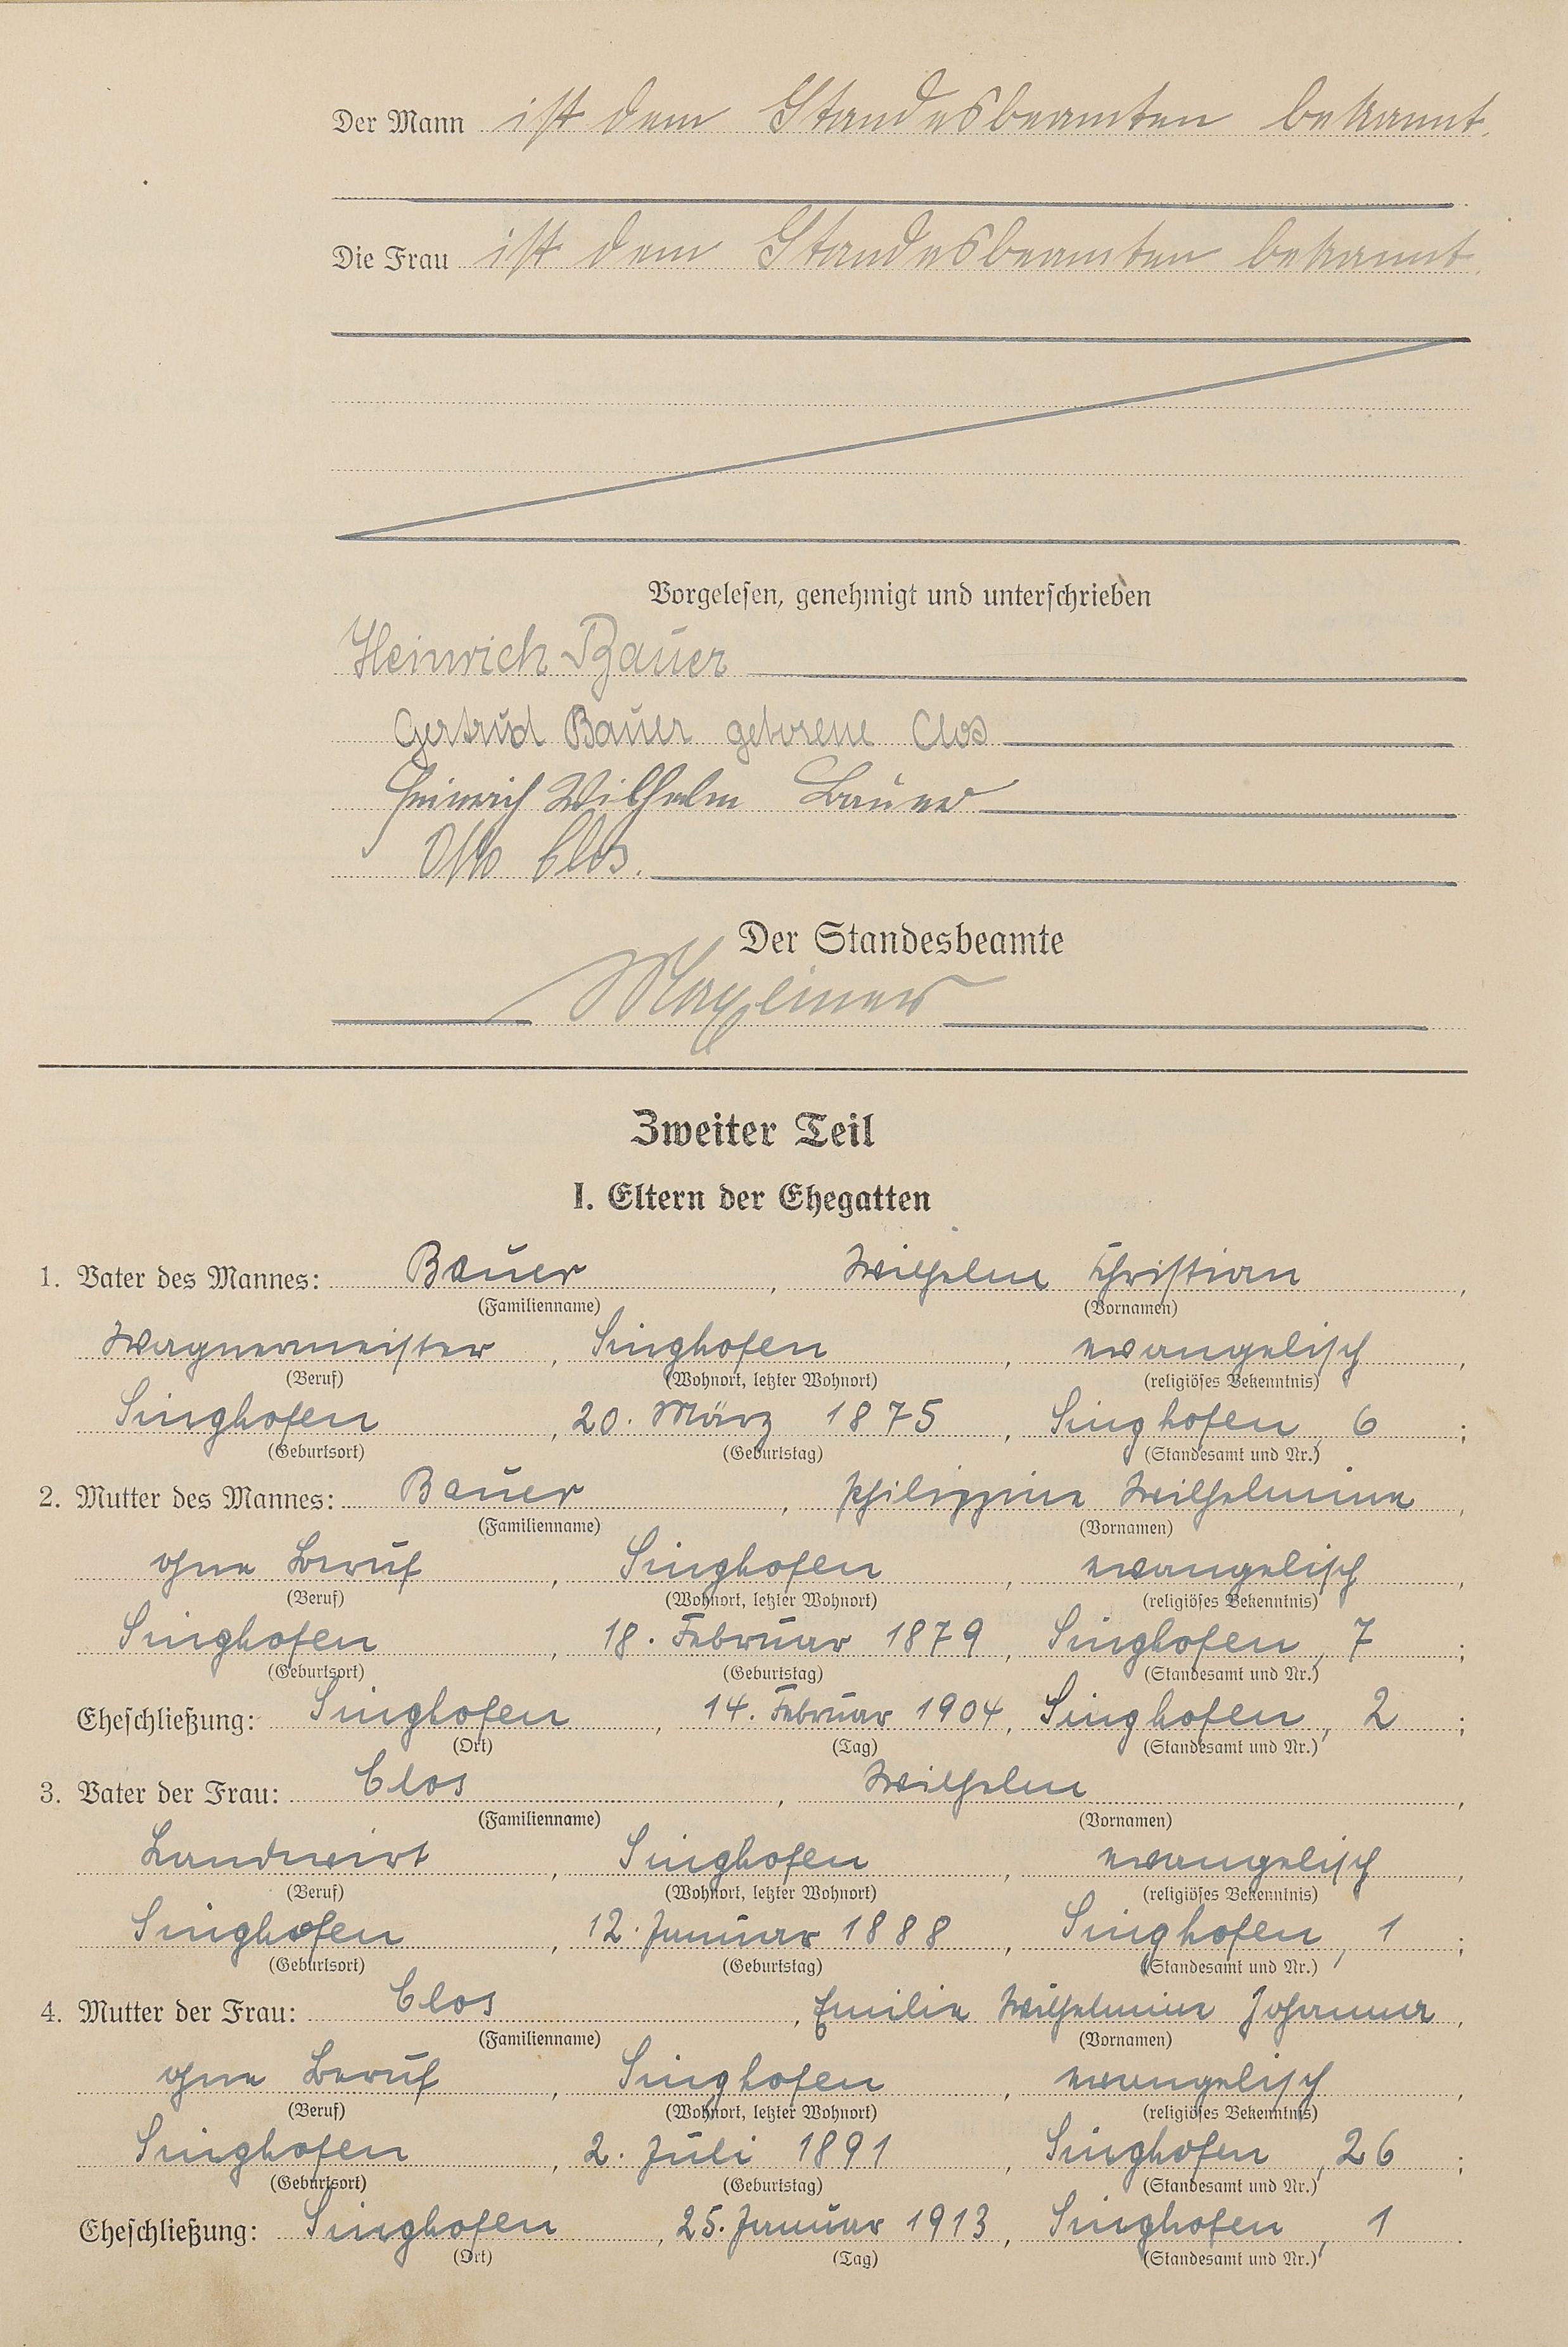 Der Mann ist dem Standesbeamten bekannt.
Die Frau ist dem Standesbeamten bekannt.
Vorgelesen, genehmigt und unterschrieben
Heinrich Bauer
Gertrud Bauer geborene Clos
Heinrich Wilhelm Bauer
Otto Clos.
Der Standesbeamte
Maxeiner
Zweiter Teil
I. Eltern der Ehegatten
1. Vater des Mannes: Bauer, Wilhelm Christian,
(Familienname) (Vornamen)
Wagnermeister, Singhofen, evangelisch,
(Beruf) (Wohnort, letzter Wohnort) (religiöses Bekenntnis)
Singhofen, 20. März 1875, Singhofen, 6;
(Geburtsort) (Geburtstag) (Standesamt und Nr.)
2. Mutter des Mannes: Bauer, Philippine Wilhelmine,
(Familienname) (Vornamen)
ohne Beruf, Singhofen, evangelisch,
(Beruf) (Wohnort, letzter Wohnort) (religiöses Bekenntnis)
Singhofen, 18. Februar 1879, Singhofen, 7;
(Geburtsort) (Geburtstag) (Standesamt und Nr.)
Eheschließung: Singhofen, 14. Februar 1904, Singhofen, 2;
(Ort) (Tag) (Standesamt und Nr.)
3. Vater der Frau: Clos, Wilhelm,
(Familienname) (Vornamen)
Landwirt, Singhofen, evangelisch,
(Beruf) (Wohnort, letzter Wohnort) (religiöses Bekenntnis)
Singhofen, 12. Januar 1888, Singhofen, 1;
(Geburtsort) (Geburtstag) (Standesamt und Nr.)
4. Mutter der Frau: Clos, Emilie Wilhelmine Johanna,
(Familienname) (Vornamen)
ohne Beruf, Singhofen, evangelisch,
(Beruf) (Wohnort, letzter Wohnort) (religiöses Bekenntnis)
Singhofen, 2. Juli 1891, Singhofen, 26;
(Geburtsort) (Geburtstag) (Standesamt und Nr.)
Eheschließung: Singhofen, 25. Januar 1913, Singhofen, 1.
(Ort) (Tag) (Standesamt und Nr.)